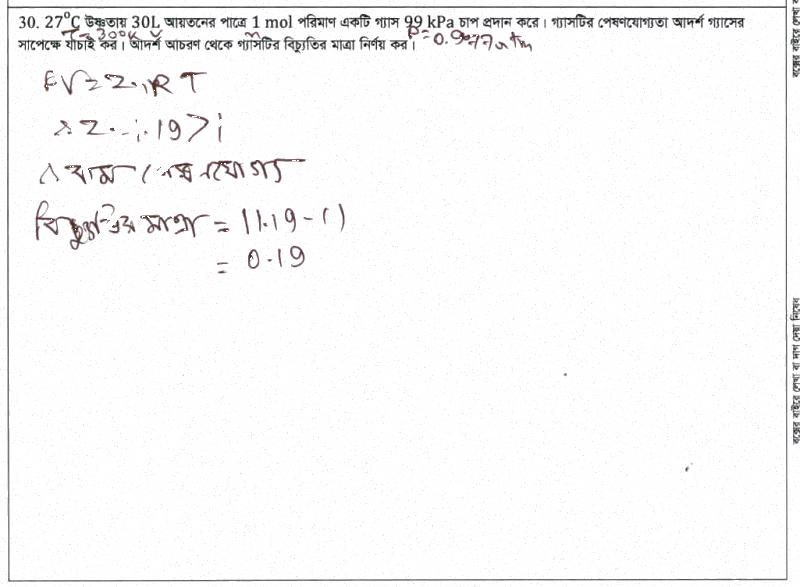 30. 27°C উষ্ণতায় 30L আয়তনের পাত্রে 1 mol পরিমাণ একটি গ্যাস 99 kPa চাপ প্রদান করে। গ্যাসটির পেষণযোগ্যতা আদর্শ গ্যাসের
T = 300K V n P = 0.977 atm
সাপেক্ষে যাচাই কর। আদর্শ আচরণ থেকে গ্যাসটির বিচ্যুতির মাত্রা নির্ণয় কর।
PV = Z nRT
∴ Z = 1.19 > 1
∴ কম পেষণযোগ্য
বিচ্যুতির মাত্রা = |1.19 - 1|
= 0.19
বক্সের বাইরে লেখা বা দাগ দেয়া নিষেধ